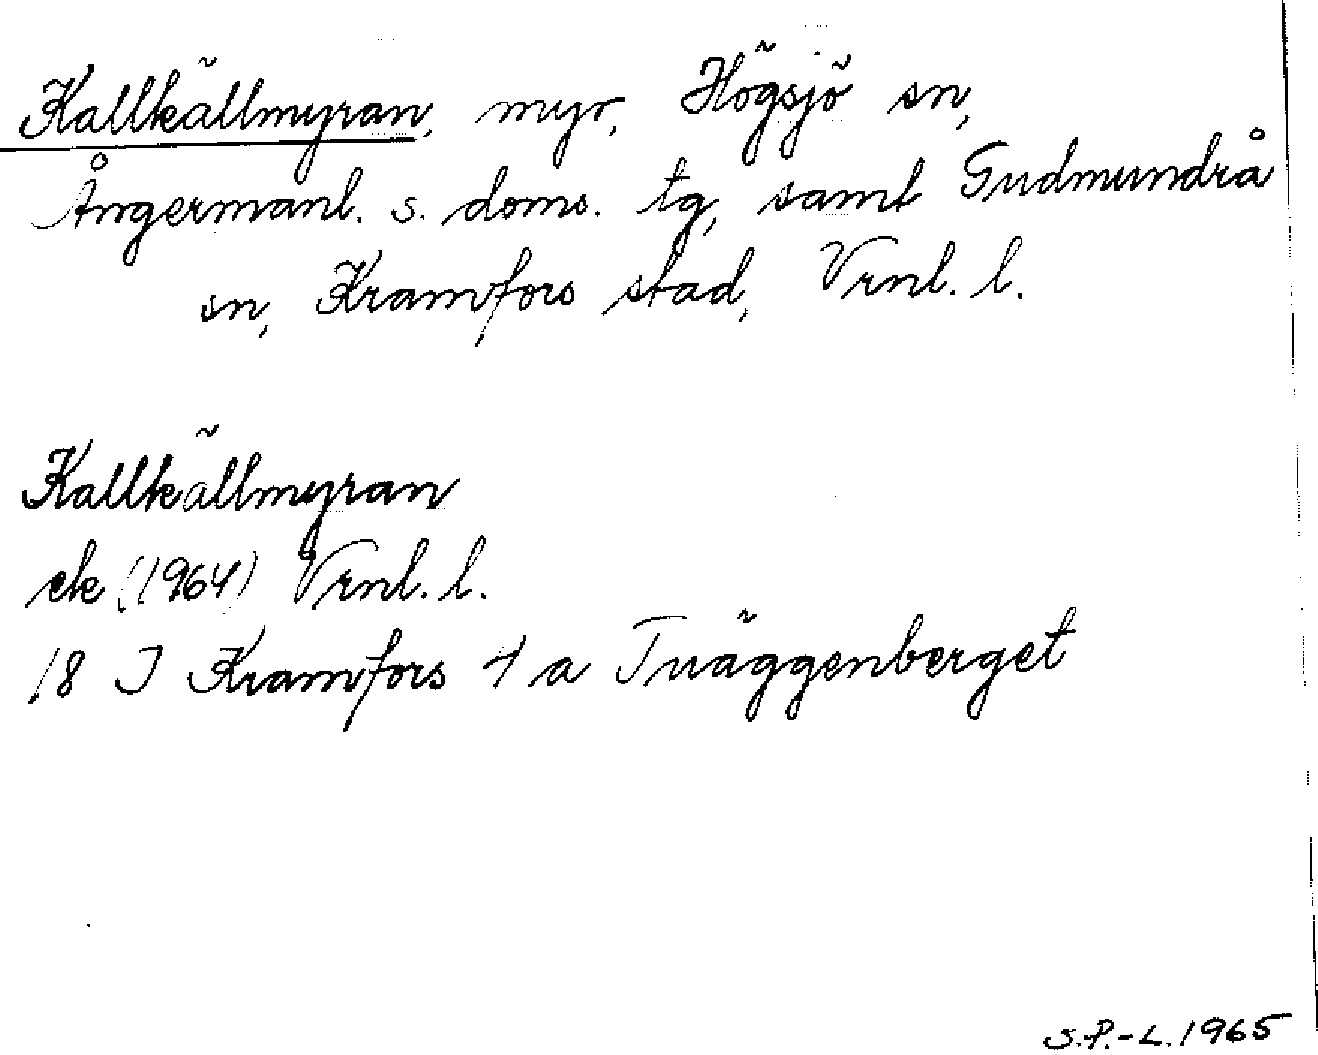 Kallkällmyran, myr, Högsjö sn,
Ångermanl. s. doms. tg, samt Gudmundrå
sn, Kramfors stad, Vrnl. l.
Kallkällmyran
ek (1964) Vrnl. l.
18 I Kramfors 1 a Tväggenberget
S.P.-L. 1965